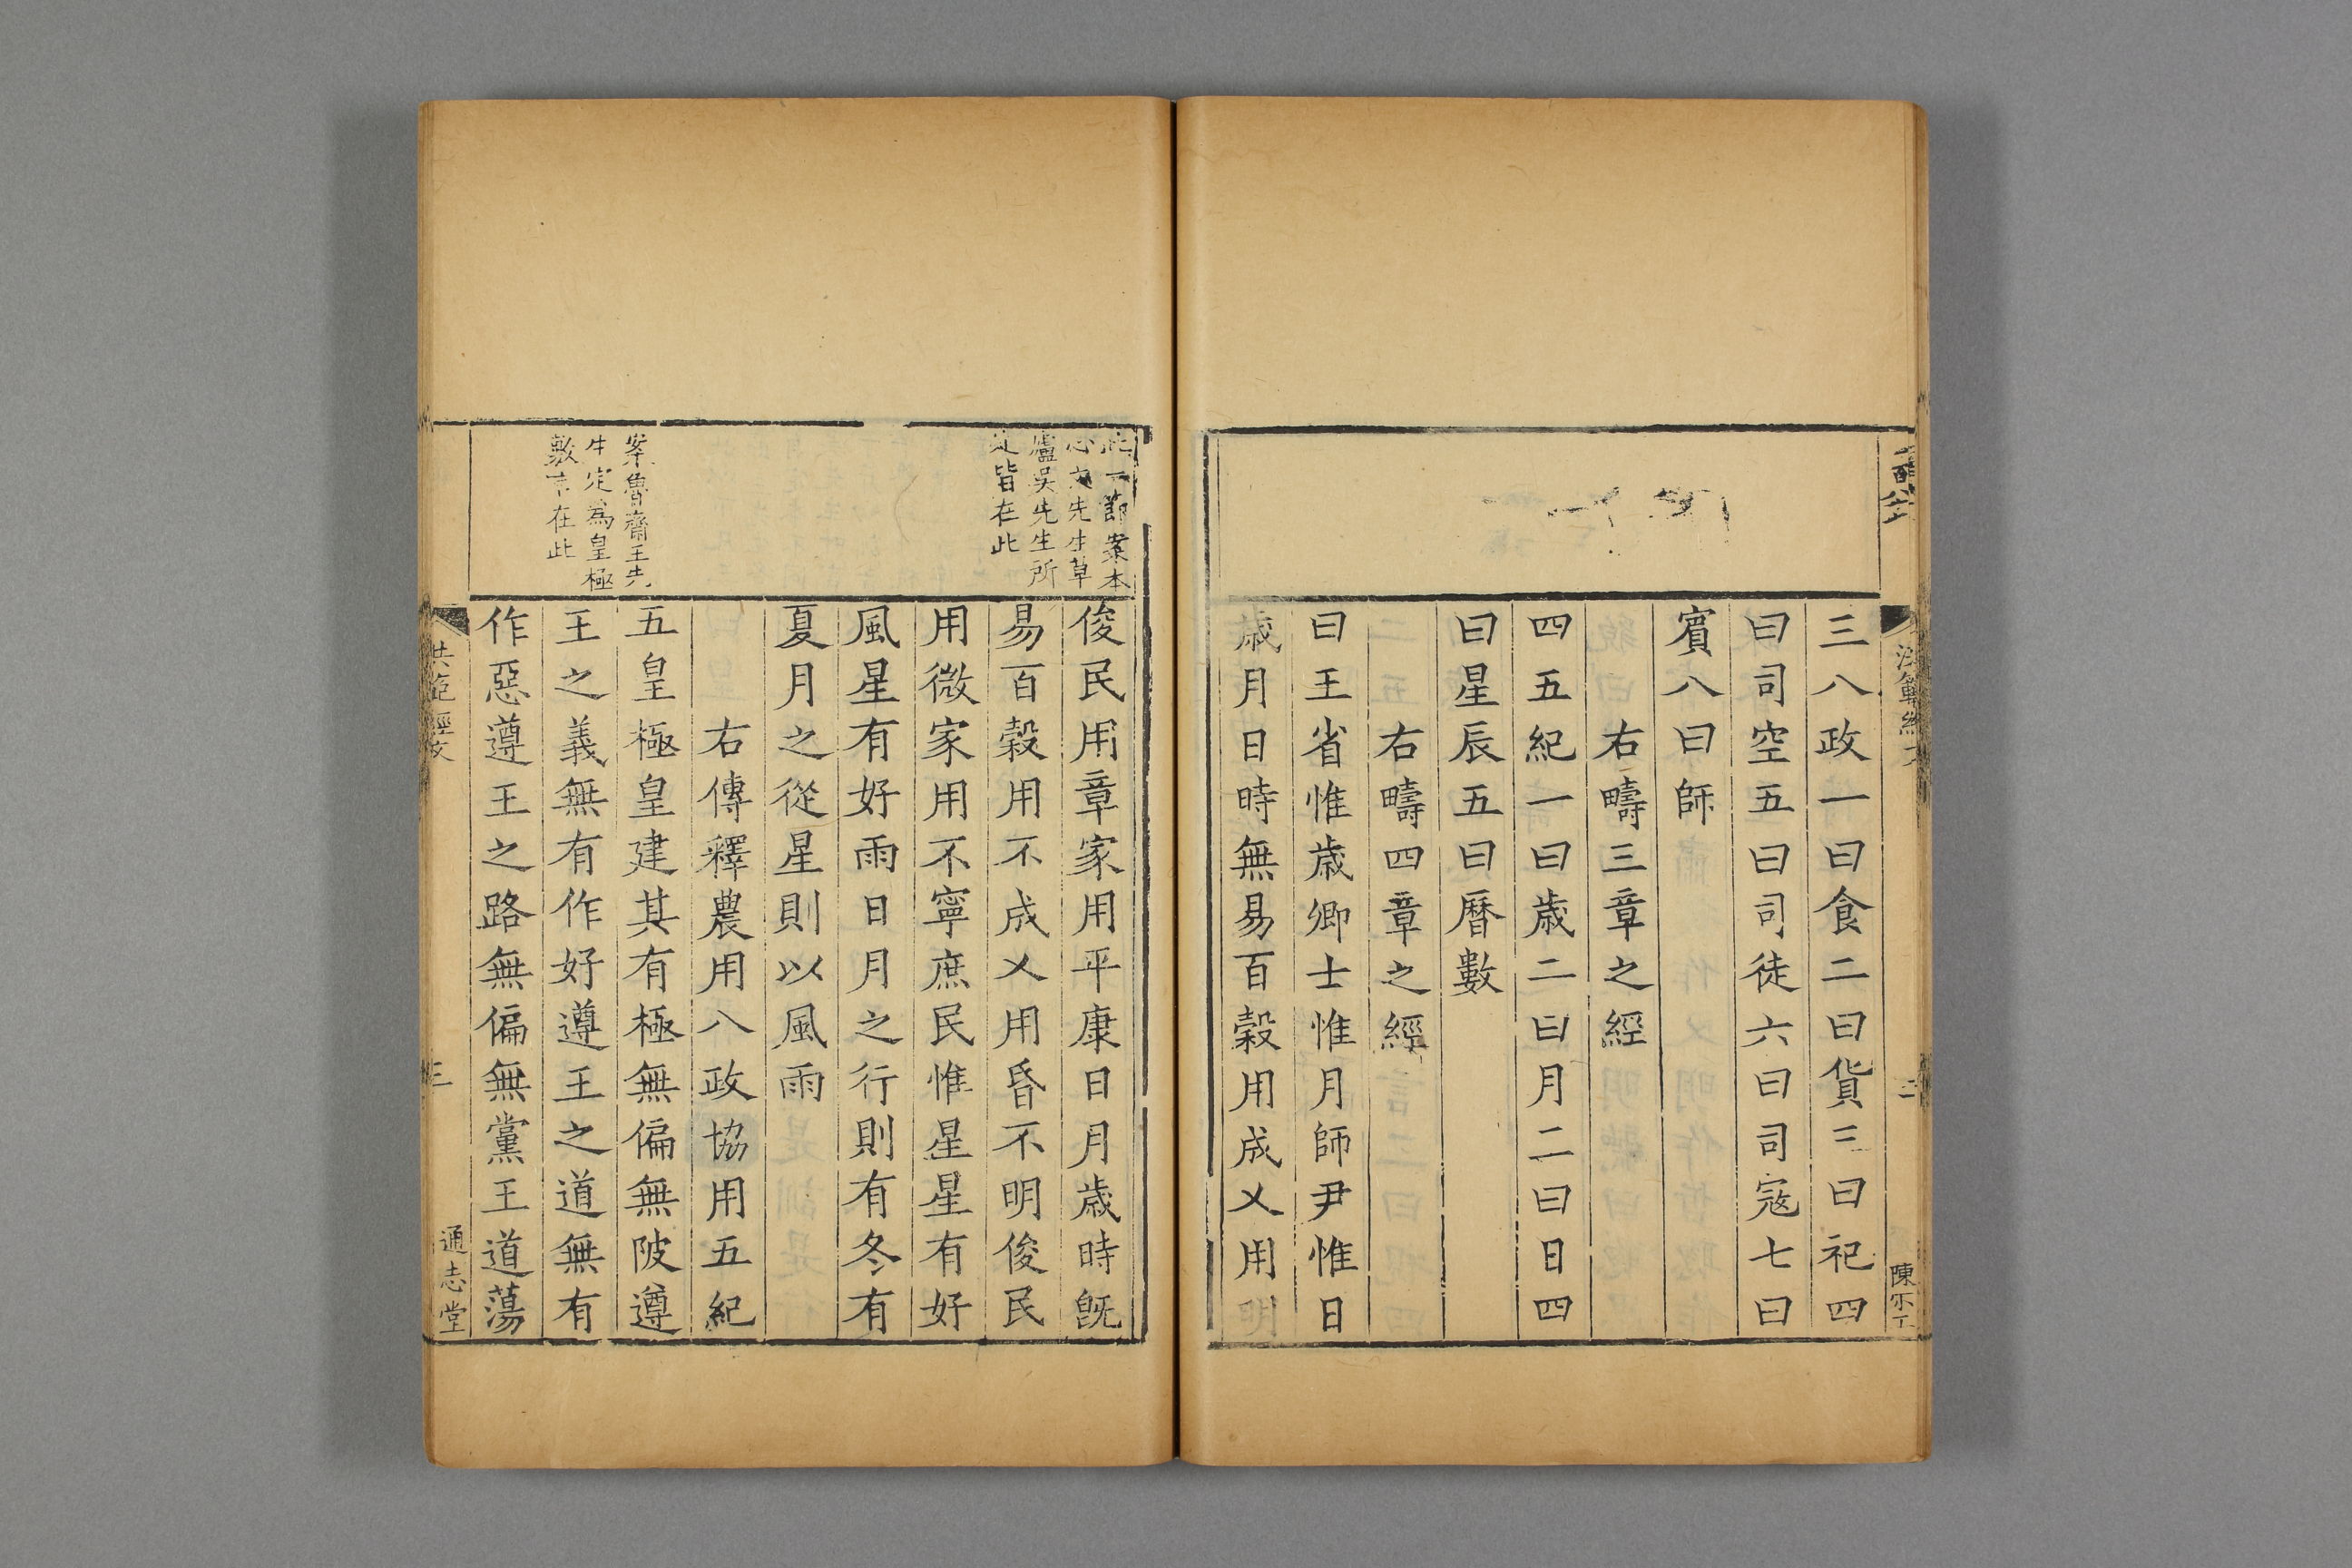 三八政一曰食二曰貨三曰祀四
曰司空五曰司徒六曰司寇七曰
賓八曰師
右疇三章之經
四五紀一曰歲二曰月二曰日四
曰星辰五曰曆數
右疇四章之經
曰王省惟歲卿士惟月師尹惟日
歲月日時無易百穀用成乂用明
陳
二
俊民用章家用平康日月歲時旣
易百穀用不成乂用昏不明俊民
用微家用不寧庶民惟星星有好
風星有好雨日月之行則有冬有
夏月之從星則以風雨
右傳釋農用八政協用五紀
五皇極皇建其有極無偏無陂遵
王之義無有作好遵王之道無有
作惡遵王之路無偏無黨王道蕩
一節案本
心文先生草
廬吳先生所
定皆在此
案魯齋王先
生定為皇極
敷言在此
洪範經文
三
通志堂